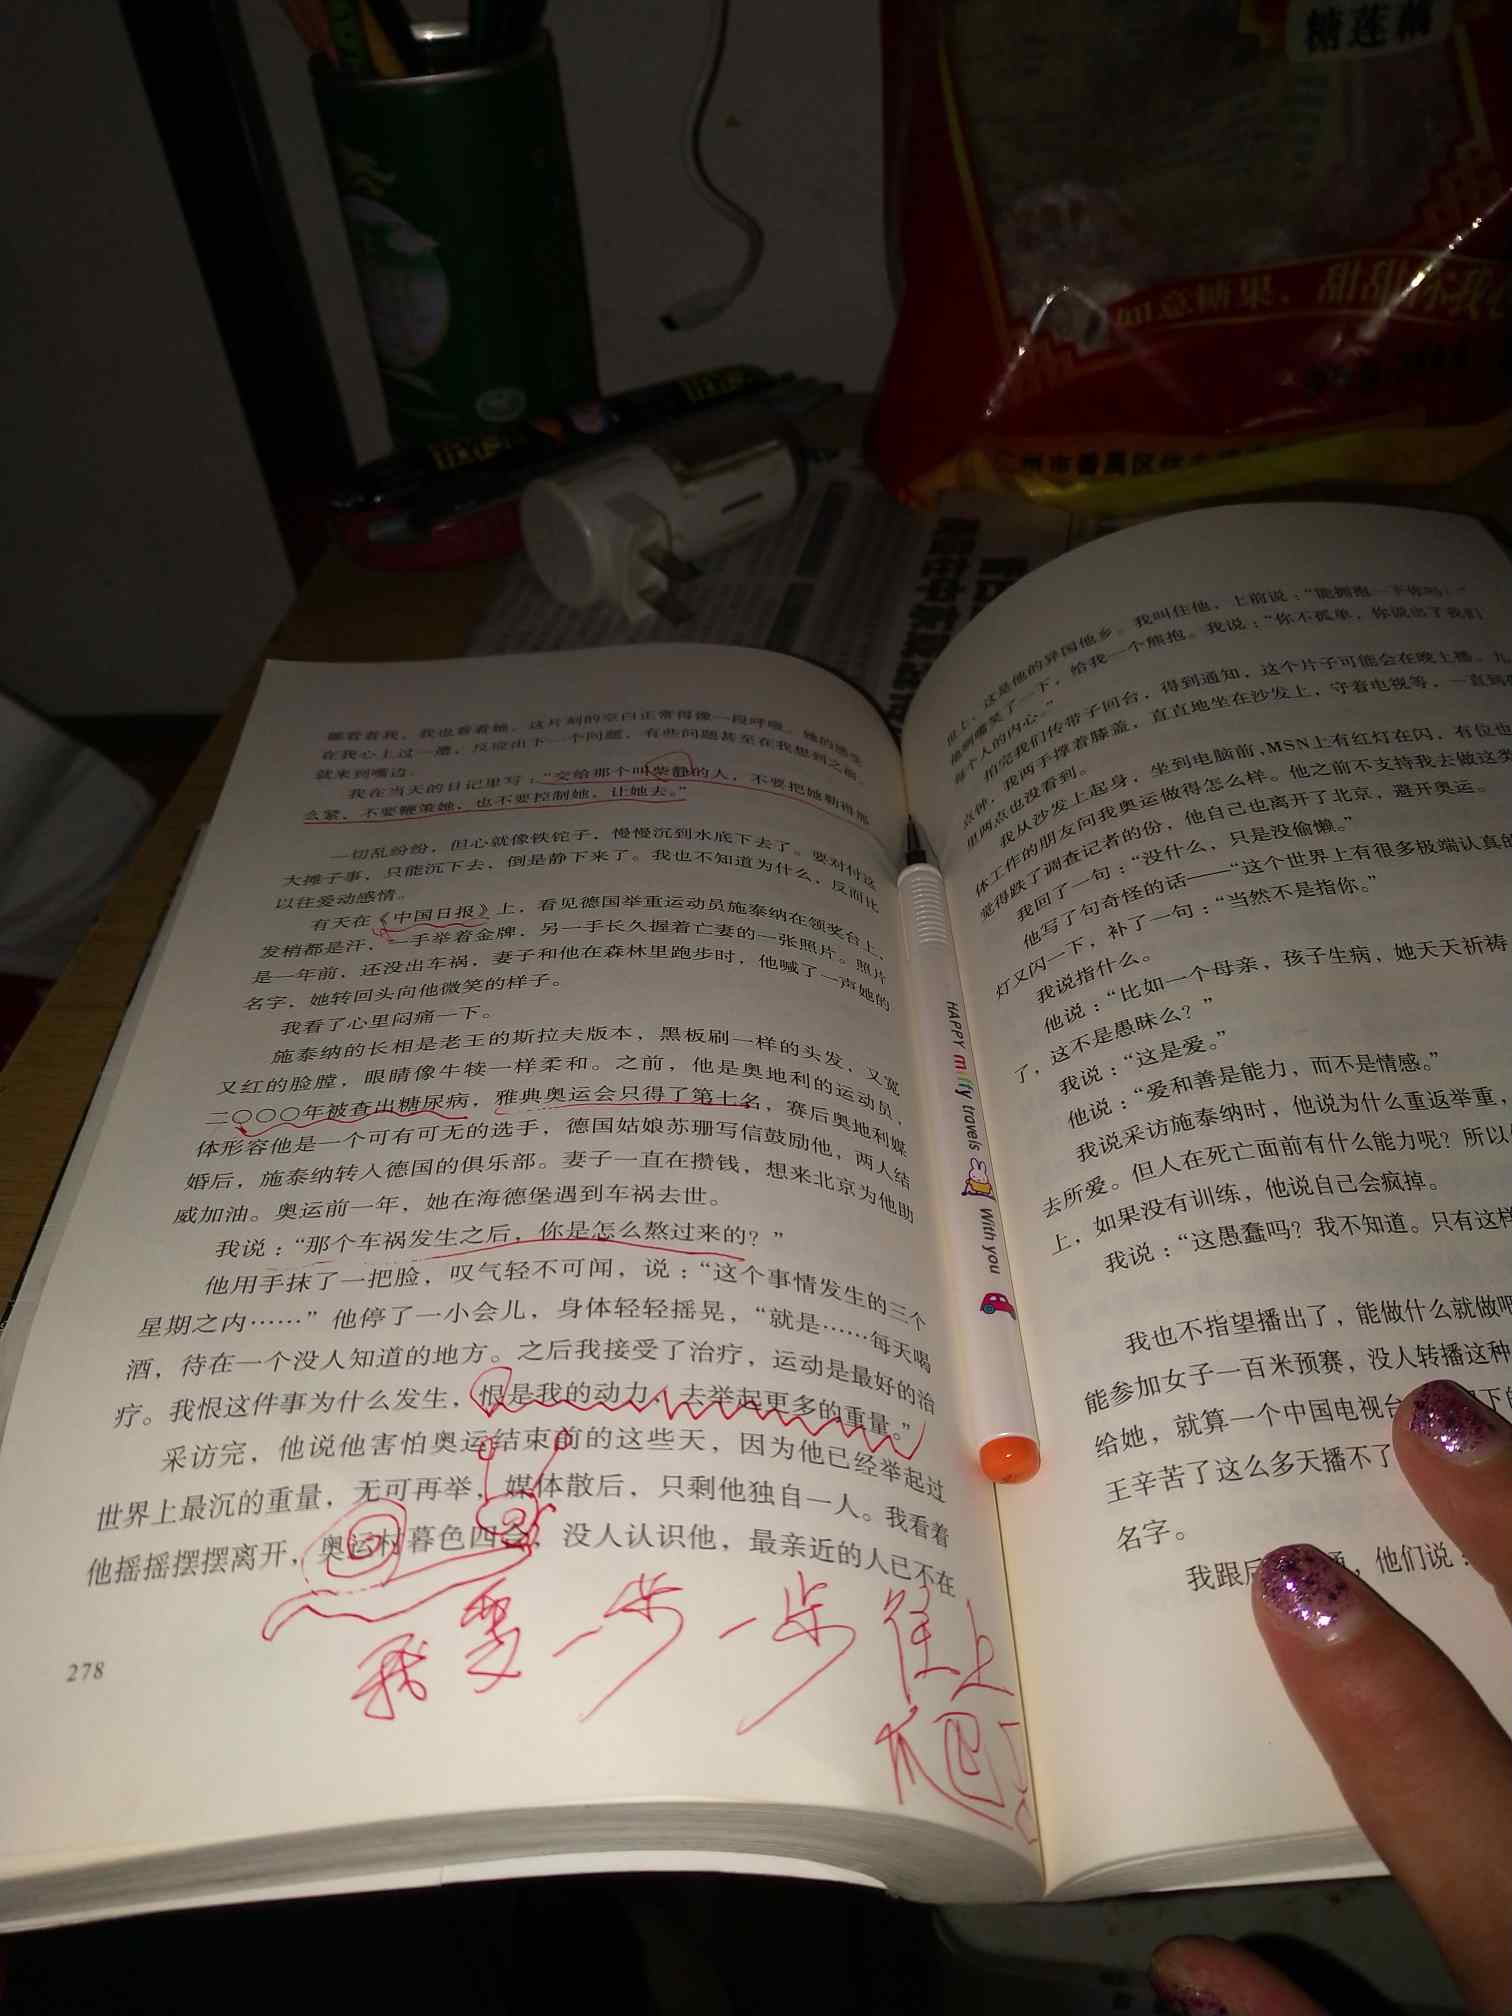 糖莲藕
如意糖果，甜甜
州市番禺区
她看着我，我也看着她，这片刻的空白正常得像一段呼吸，她的感受
在我心上过一遭，反应出下一个问题，有些问题甚至在我想到之前，
就来到嘴边。
我在当天的日记里写：“交给那个叫柴静的人，不要把她勒得那
么紧，不要鞭策她，也不要控制她，让她去。”
一切乱纷纷，但心就像铁铊子，慢慢沉到水底下去了。要对付这
大摊子事，只能沉下去，倒是静下来了。我也不知道为什么，反而比
以往爱动感情。
有天在《中国日报》上，看见德国举重运动员施泰纳在领奖台上，
发梢都是汗，一手举着金牌，另一手长久握着亡妻的一张照片。照片
是一年前，还没出车祸，妻子和他在森林里跑步时，他喊了一声她的
名字，她转回头向他微笑的样子。
我看了心里闷痛一下。
施泰纳的长相是老王的斯拉夫版本，黑板刷一样的头发，又宽
又红的脸膛，眼睛像牛犊一样柔和。之前，他是奥地利的运动员，
二〇〇〇年被查出糖尿病，雅典奥运会只得了第七名，赛后奥地利媒
体形容他是一个可有可无的选手，德国姑娘苏珊写信鼓励他，两人结
婚后，施泰纳转入德国的俱乐部。妻子一直在攒钱，想来北京为他助
威加油。奥运前一年，她在海德堡遇到车祸去世。
我说：“那个车祸发生之后，你是怎么熬过来的？”
他用手抹了一把脸，叹气轻不可闻，说：“这个事情发生的三个
星期之内……”他停了一小会儿，身体轻轻摇晃，“就是……每天喝
酒，待在一个没人知道的地方。之后我接受了治疗，运动是最好的治
疗。我恨这件事为什么发生，恨是我的动力，去举起更多的重量。”
采访完，他说他害怕奥运结束前的这些天，因为他已经举起过
世界上最沉的重量，无可再举，媒体散后，只剩他独自一人。我看着
他摇摇摆摆离开，奥运村暮色四合，没人认识他，最亲近的人已不在
我要一步一步往上
爬
278
世上，这是他的异国他乡。我叫住他，上前说：“能拥抱一下你吗？”
他咧嘴笑了一下，给我一个熊抱。我说：“你不孤单，你说出了我们
每个人的内心。”
拍完我们传带子回台，得到通知，这个片子可能会在晚上播。九
点钟，我两手撑着膝盖，直直地坐在沙发上，守着电视等，一直到
里两点也没看到。
我从沙发上起身，坐到电脑前，MSN上有红灯在闪，有位也
体工作的朋友问我奥运做得怎么样。他之前不支持我去做这类
觉得跌了调查记者的份，他自己也离开了北京，避开奥运。
我回了一句：“没什么，只是没偷懒。”
他写了句奇怪的话——“这个世界上有很多极端认真的
灯又闪一下，补了一句：“当然不是指你。”
我说指什么。
他说：“比如一个母亲，孩子生病，她天天祈祷
了，这不是愚昧么？”
我说：“这是爱。”
他说：“爱和善是能力，而不是情感。”
我说采访施泰纳时，他说为什么重返举重，
去所爱。但人在死亡面前有什么能力呢？所以
上，如果没有训练，他说自己会疯掉。
我说：“这愚蠢吗？我不知道。只有这样
我也不指望播出了，能做什么就做吧
能参加女子一百米预赛，没人转播这种
给她，就算一个中国电视台
王辛苦了这么多天播不了
名字。
我跟后，他们说：
HAPPY miffy travels With you